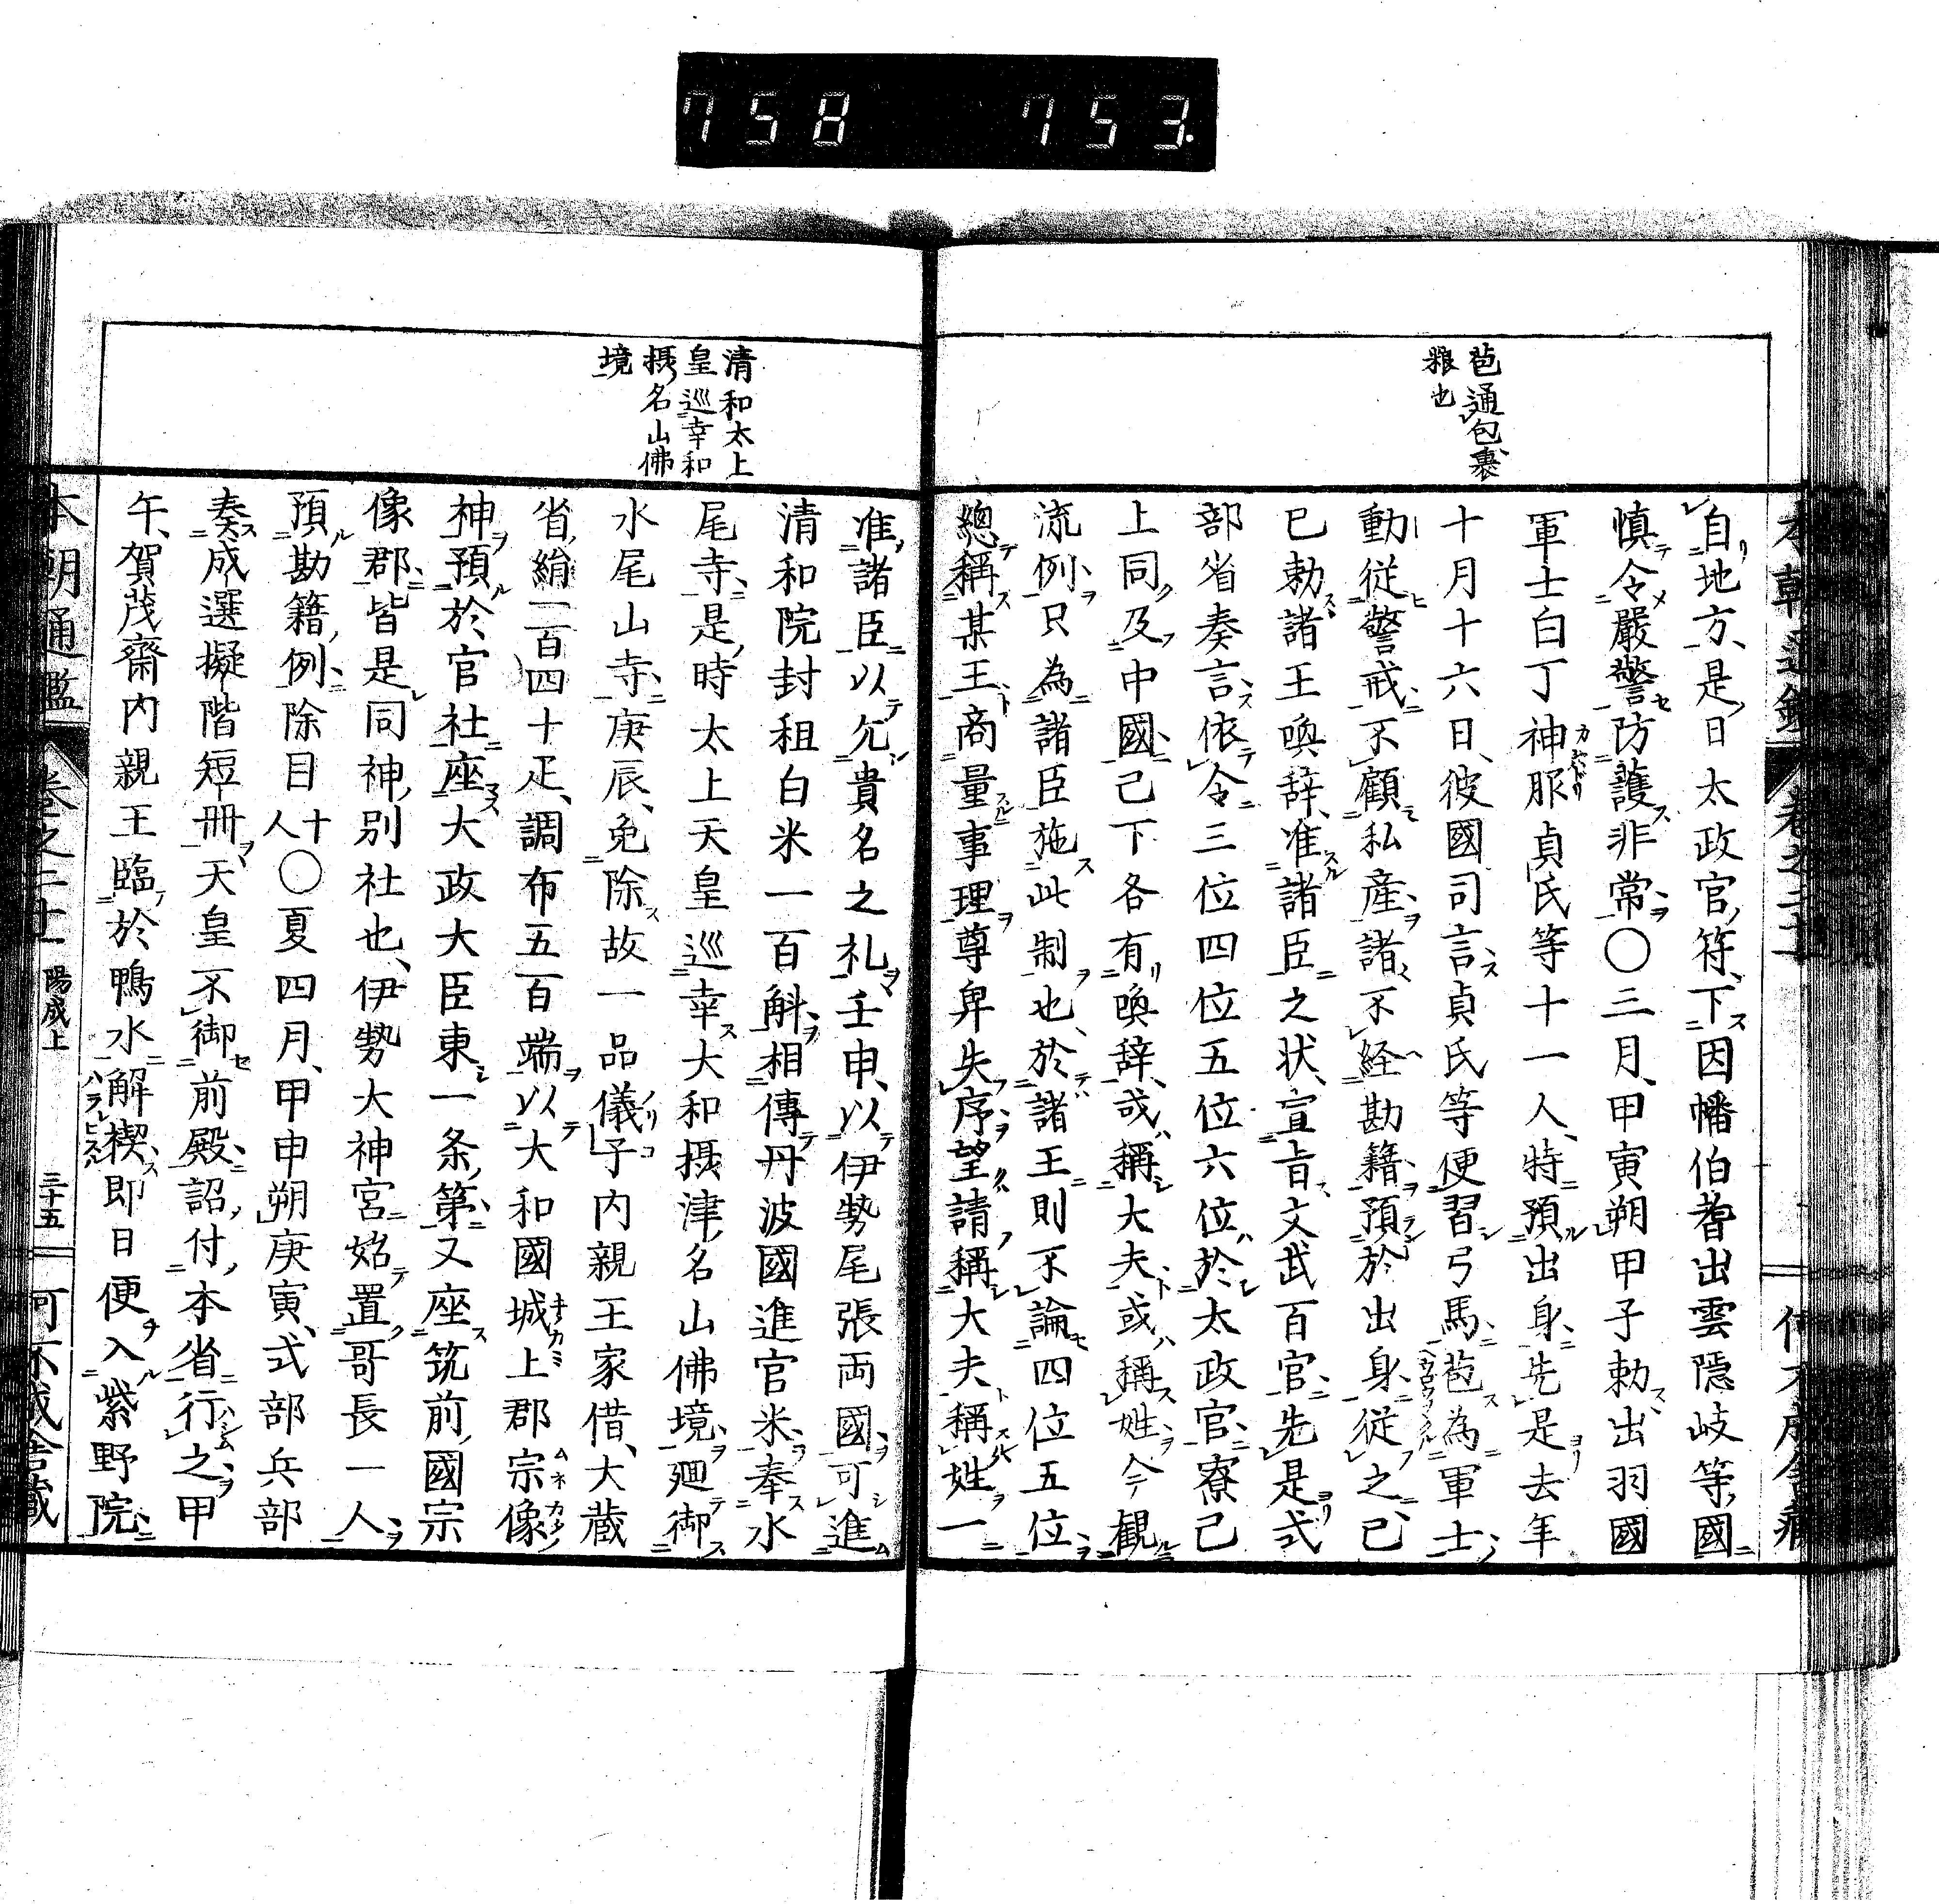 758 753.
苞通包裹
粮也
自地方是日太政官符下因幡伯耆出雲隠岐等國
慎令嚴警防護非常〇三月甲寅朔甲子勅出羽國
軍士白丁神服貞氏等十一人特預出身先是去年
十月十六日彼國司言貞氏等便習弓馬苞為軍士
動従警戒不顧私産諸不経勘籍預於出身従之已
巳勅諸王喚辞准諸臣之状宣旨文武百官先是式
部省奏言依令三位四位五位六位於太政官寮已
上同及中國已下各有喚辞或稱大夫或稱姓今觀
流例只為諸臣施此制也於諸王則不論四位五位
總稱某王商量事理尊卑失序望請稱大夫稱姓一
清和太上
皇巡幸和
摂名山佛
境
准諸臣以允貴名之礼壬申以伊勢尾張両國可進
清和院封租白米一百斛相傳丹波國進官米奉水
尾寺是時太上天皇巡幸大和摂津名山佛境廻御
水尾山寺庚辰免除故一品儀子内親王家借大蔵
省絹二百四十疋調布五百端以大和國城上郡宗像
神預於官社座大政大臣東一条第又座筑前國宗
像郡皆是同神別社也伊勢大神宮始置哥長一人
預勘籍例除目十人〇夏四月甲申朔庚寅式部兵部
奏成選擬階短冊天皇不御前殿詔付本省行之甲
午賀茂齋内親王臨於鴨水解禊即日便入紫野院
本朝通鑑 巻之二十 陽成上 三十五